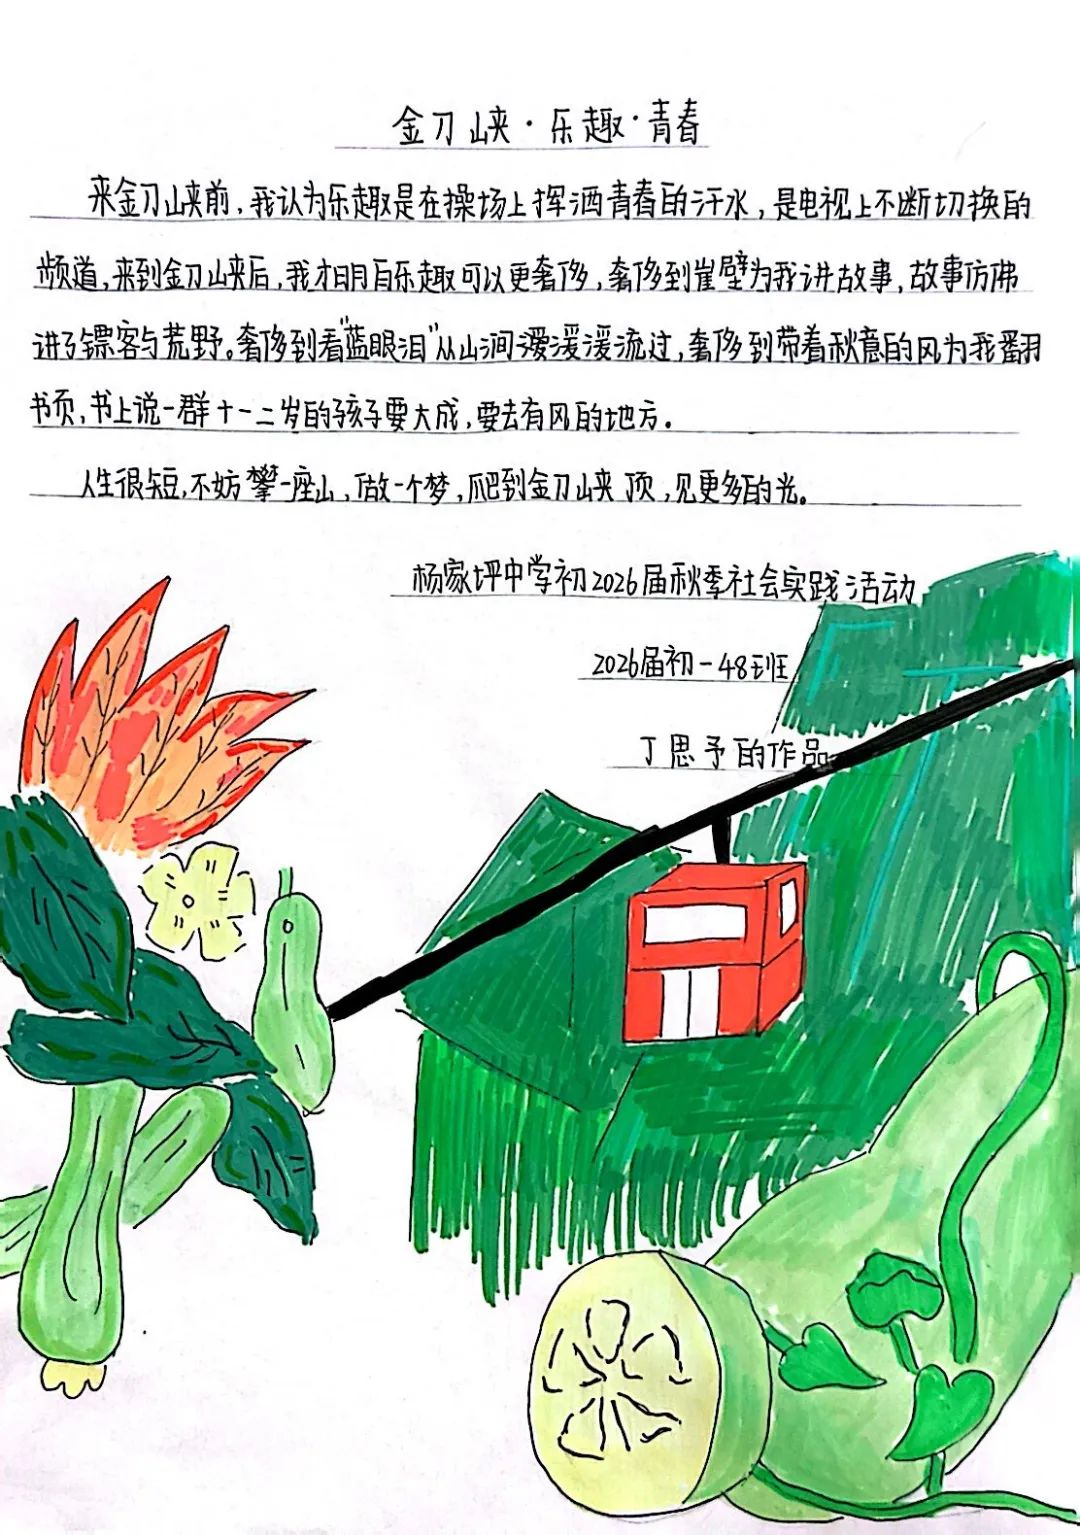 金刀峡·乐趣·青春
来金刀峡前，我认为乐趣是在操场上挥洒青春的汗水，是电视上不断切换的
频道，来到金刀峡后，我才明白乐趣可以更奢侈，奢侈到崖壁为我讲故事，故事仿佛
讲了镖客与荒野。奢侈到看“蓝眼泪”从山涧缓缓流过，奢侈到带着秋意的风为我翻
书页，书上说一群十一二岁的孩子要大成，要去有风的地方。
人生很短，不妨攀一座山，做一个梦，爬到金刀峡顶，见更多的光。
杨家坪中学初2026届秋季社会实践活动
2026届初一48班
丁思予的作品